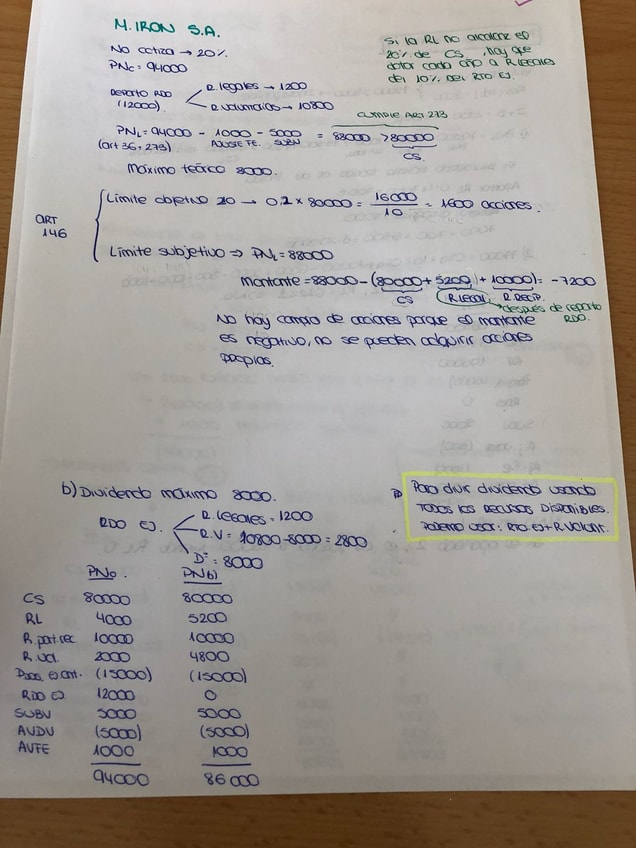 M. IRON S.A.
No cotiza → 20%.
PNc = 94000
Si la RL no alcalanze el
20% de CS, hay que
dotar cada año a R legales
del 10% del RTO EJ.
Reparto RDO
(12000)
R. legales → 1200
R. voluntarios → 10800
CUMPLE ART 273
PNL = 94000 - 1000 - 5000 = 88000 > 80000
(art 36+273) AJUSTE FE. SUBV CS.
Máximo teórico 8000.
ART
146
Límite objetivo 20 → 0.2 x 80000 = 16000/10 = 1600 acciones.
Límite subjetivo ⇒ PNL = 88000
Montante = 88000 - (80000 + 5200 + 10000) = -7200
CS R. LEGAL R. RECIP.
después de reparto
RDO.
No hay compra de acciones porque el montante
es negativo, no se pueden adquirir acciones
propias.
b) Dividendo máximo 8000.
RDO EJ.
R. legales = 1200
R.V = 10800 - 8000 = 2800
Dº = 8000
Para divir dividendo usando
TODOS LOS RECURSOS DISPONIBLES.
PODEMO USAR: RTO. EJ + R. VOLUNT.
PN0. PNb)
CS 80000 80000
RL 4000 5200
R. part. rec. 10000 10000
R. vol. 2000 4800
Pdas. EJ ant. (15000) (15000)
RDO EJ 12000 0
SUBV 5000 5000
AUDV (5000) (5000)
AVFE 1000 1000
94000 86000